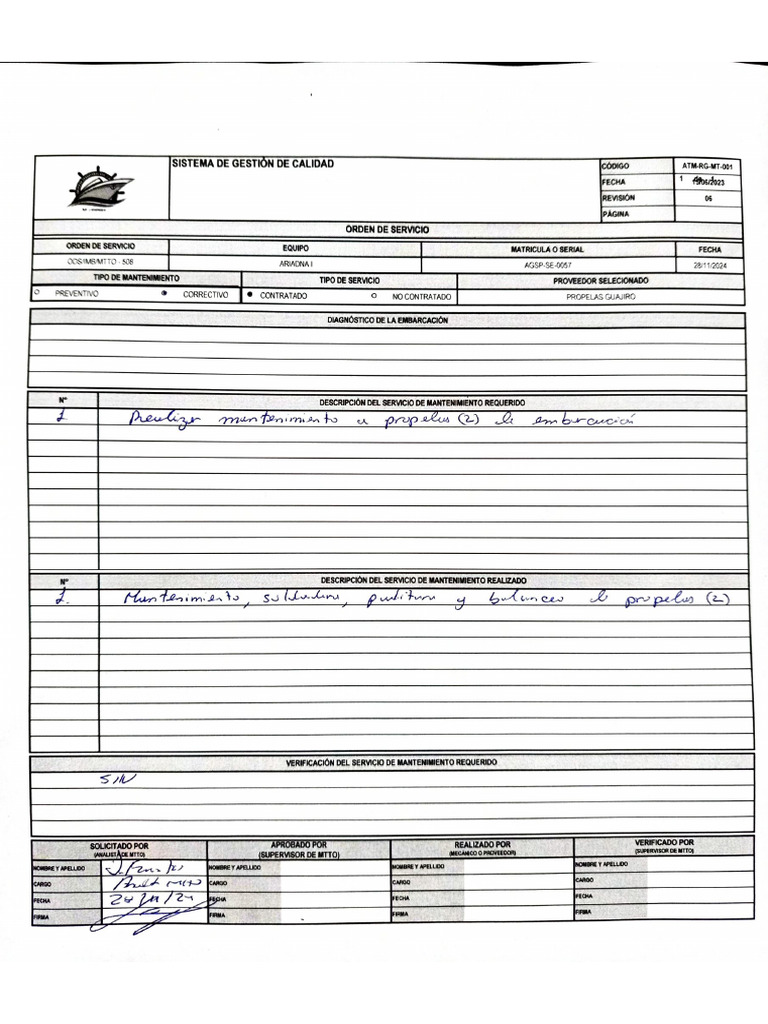 SISTEMA DE GESTIÓN DE CALIDAD
CÓDIGO ATM-RG-MT-001
FECHA 15/06/2023
REVISIÓN 06
PÁGINA 1
ORDEN DE SERVICIO
ORDEN DE SERVICIO EQUIPO MATRICULA O SERIAL FECHA
ODS/IMS/MTTO - 508 ARIADNA I AGSP-SE-0057 28/11/2024
TIPO DE MANTENIMIENTO TIPO DE SERVICIO PROVEEDOR SELECIONADO
PREVENTIVO CORRECTIVO CONTRATADO NO CONTRATADO PROPELAS GUAJIRO
DIAGNÓSTICO DE LA EMBARCACIÓN
N° DESCRIPCIÓN DEL SERVICIO DE MANTENIMIENTO REQUERIDO
1 Realizar mantenimiento a propelas (2) de embarcación
N° DESCRIPCIÓN DEL SERVICIO DE MANTENIMIENTO REALIZADO
1. Mantenimiento, soldadura, pulitura y balanceo de propelas (2)
VERIFICACIÓN DEL SERVICIO DE MANTENIMIENTO REQUERIDO
S/N
SOLICITADO POR APROBADO POR REALIZADO POR VERIFICADO POR
(ANALISTA DE MTTO) (SUPERVISOR DE MTTO) (MECÁNICO O PROVEEDOR) (SUPERVISOR DE MTTO)
NOMBRE Y APELLIDO NOMBRE Y APELLIDO NOMBRE Y APELLIDO NOMBRE Y APELLIDO
CARGO CARGO CARGO CARGO
FECHA 28/11/24 FECHA FECHA FECHA
FIRMA FIRMA FIRMA FIRMA